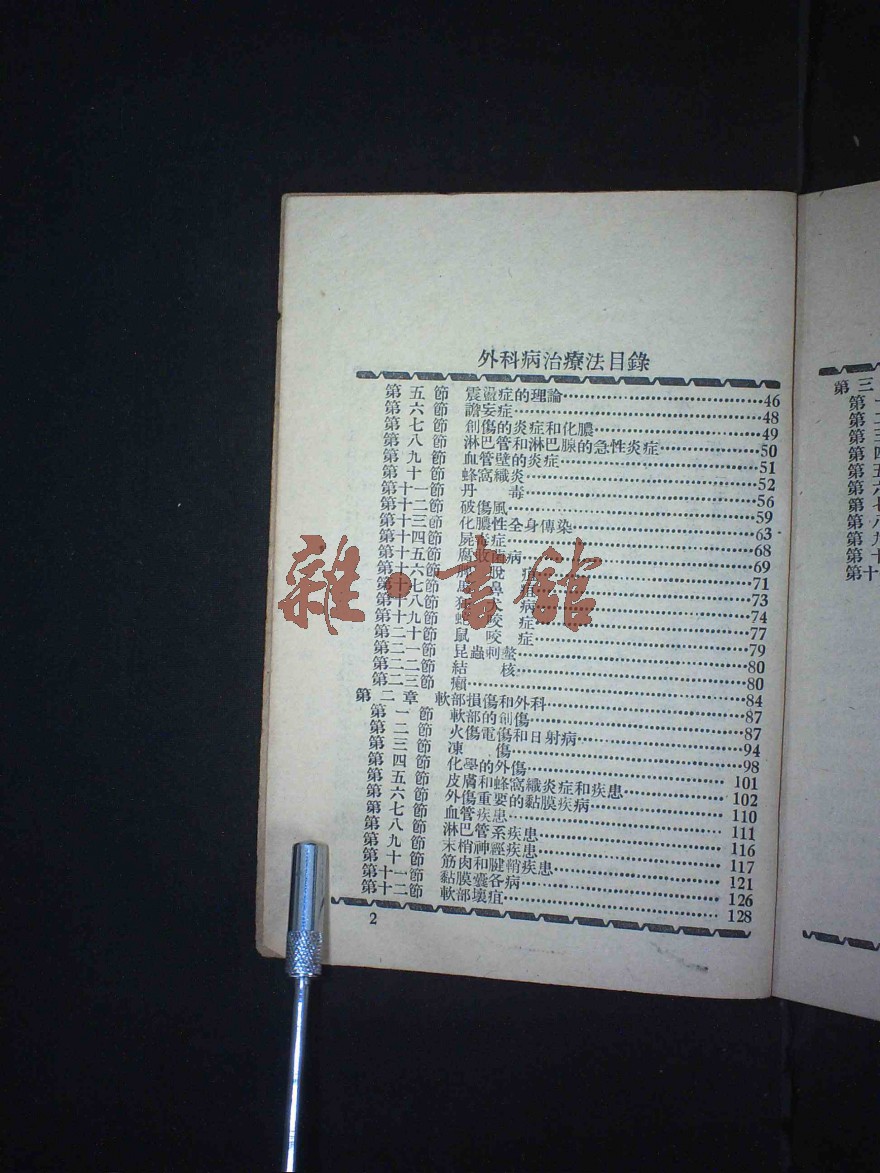 外科病治療法目錄
第五節 震盪症的理論……46
第六節 譫妄症……48
第七節 創傷的炎症和化膿……49
第八節 淋巴管和淋巴腺的急性炎症……50
第九節 血管壁的炎症……51
第十節 蜂窩織炎……52
第十一節 丹毒……56
第十二節 破傷風……59
第十三節 化膿性全身傳染……63
第十四節 屍毒症……68
第十五節 病……69
第十六節 脫疽……71
第十七節 鼻疽……73
第十八節 犬病……74
第十九節 咬症……77
第二十節 鼠咬症……79
第二一節 昆蟲刺螫……80
第二二節 結核……80
第二三節 癩……84
第二章 軟部損傷和外科……87
第一節 軟部的創傷……87
第二節 火傷電傷和日射病……94
第三節 凍傷……98
第四節 化學的外傷……101
第五節 皮膚和蜂窩織炎症和疾患……102
第六節 外傷重要的黏膜疾病……110
第七節 血管疾患……111
第八節 淋巴管系疾患……116
第九節 末梢神經疾患……117
第十節 筋肉和腱鞘疾患……121
第十一節 黏膜囊各病……126
第十二節 軟部壞疽……128
2
雜·書館
第三